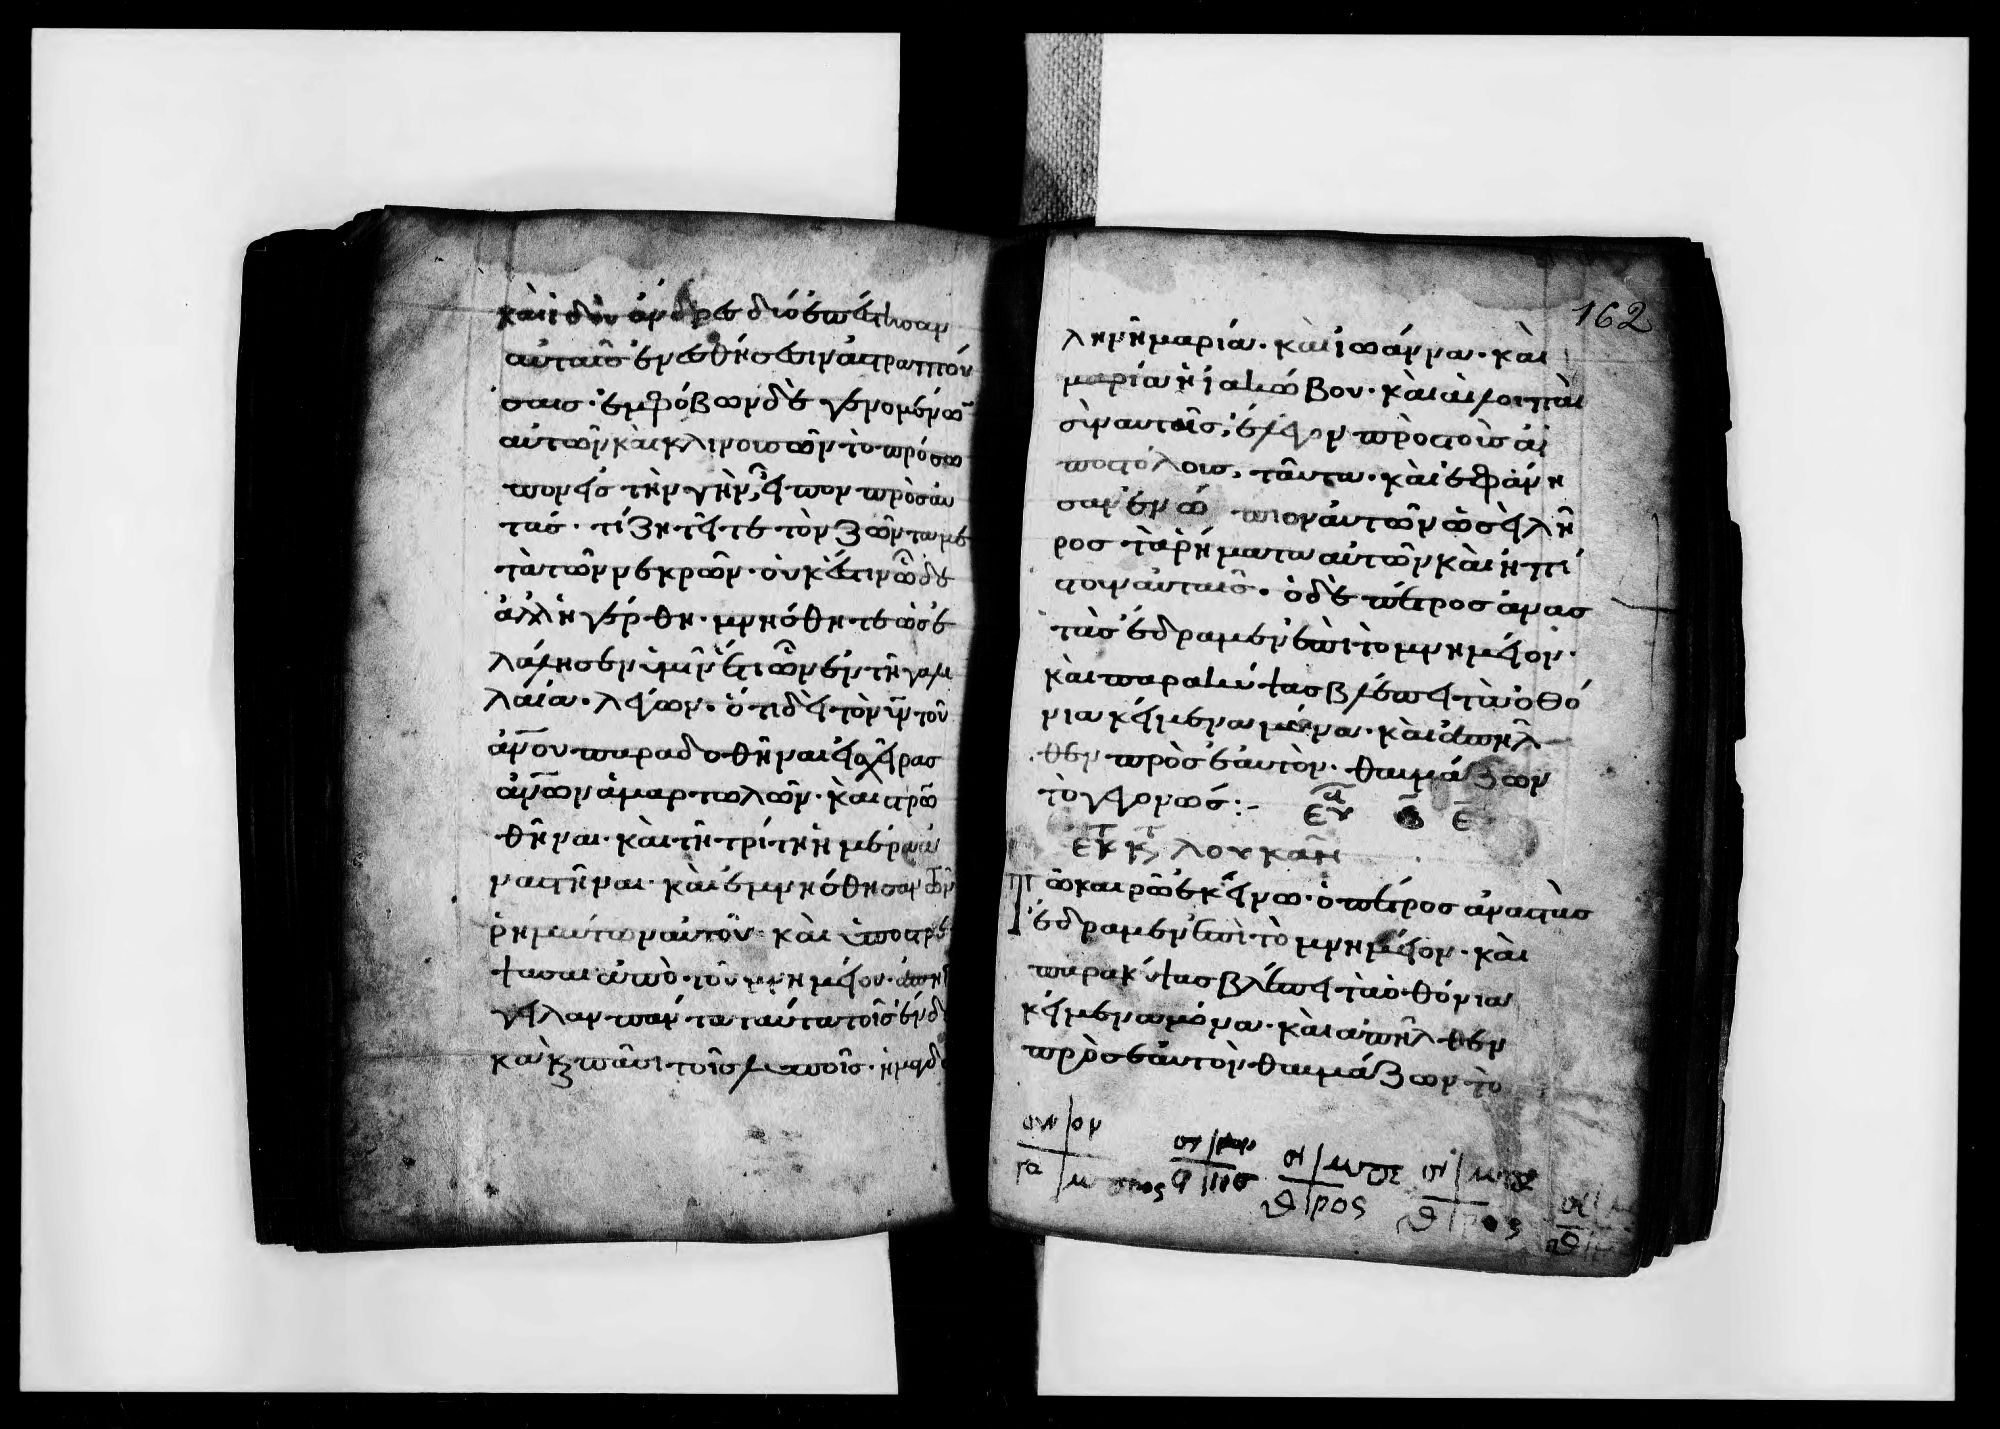 καὶ ἰδοὺ ἄνδρες δύο ἐπέστησαν
αὐταῖς ἐν ἐσθήσεσιν ἀστραπτού
σαις· ἐμφόβων δὲ γενομένω
αὐτῶν καὶ κλινουσῶν τὸ πρόσω
πον εἰς τὴν γὴν, εἶπον πρὸς αὐ
τάς· τί ζητεῖτε τὸν ζῶντα με
τὰ τῶν νεκρῶν· οὐκ ἔστιν ὧδε
ἀλλ ἠγέρθη· μνήσθητε ὡς ἐ
λάλησεν ὑμῖν ἔτι ὢν ἐν τῆ γαλι
λαία· λέγων· ὅτι δεῖ τὸν ῡν τοῦ
ἀν̄ου παραδοθῆναι εἰς χεῖρας
ἀν̄ων ἁμαρτωλῶν· καὶ στρω
θῆναι· καὶ τῆ τρίτη ἡμέρα ἀ
ναστῆναι· καὶ ἐμνήσθησαν τῶν
ῥημάτων αὐτοῦ· καὶ ὑποστρέ
ψασαι ἀπὸ τοῦ μνημείου· ἀπήγ
γειλαν πάντα ταῦτα τοῖς ἕνδε
κα κ̀ πᾶσι τοῖς λοιποῖς· ἦ μαγδα
162
ληνῆ μαρία· καὶ ἰωάννα· καὶ
μαρία ἡ ἰακώβου· καὶ αἱ λοιπαὶ
σὺν αυτοῖς, ἔλεγον πρὸς τοὺς ἀ
ποστόλοις, ταῦτα· καὶ ἐφάνη
σαν ἐνώπιον αὐτῶν ὡσεὶ λῆ
ρος τὰ ῥήματα αὐτῶν καὶ ἠπί
στουν αὐταῖς· ὁ δὲ πέτρος ἀνασ
τὰς ἔδραμεν ἐπὶ τὸ μνημεῖον·
καὶ παρακύψας βλέπει τὰ ὀθό
νια κείμενα μόνα· καὶ ἀπῆλ
θεν πρὸς ἑαυτὸν· θαυμάζων
τὸ γεγονώς:-
εκ τ κ λουκᾶν
Τῶ καιρῶ ἐκείνω· ὁ πέτρος ἀναστὰς
ἔδραμεν ἐπὶ τὸ μνημεῖον· καὶ
παρακύψας βλέπει τὰ ὀθόνια
κείμενα μόνα· καὶ ἀπῆλθεν
πρὸς ἑαυτὸν θαυμάζων τὸ